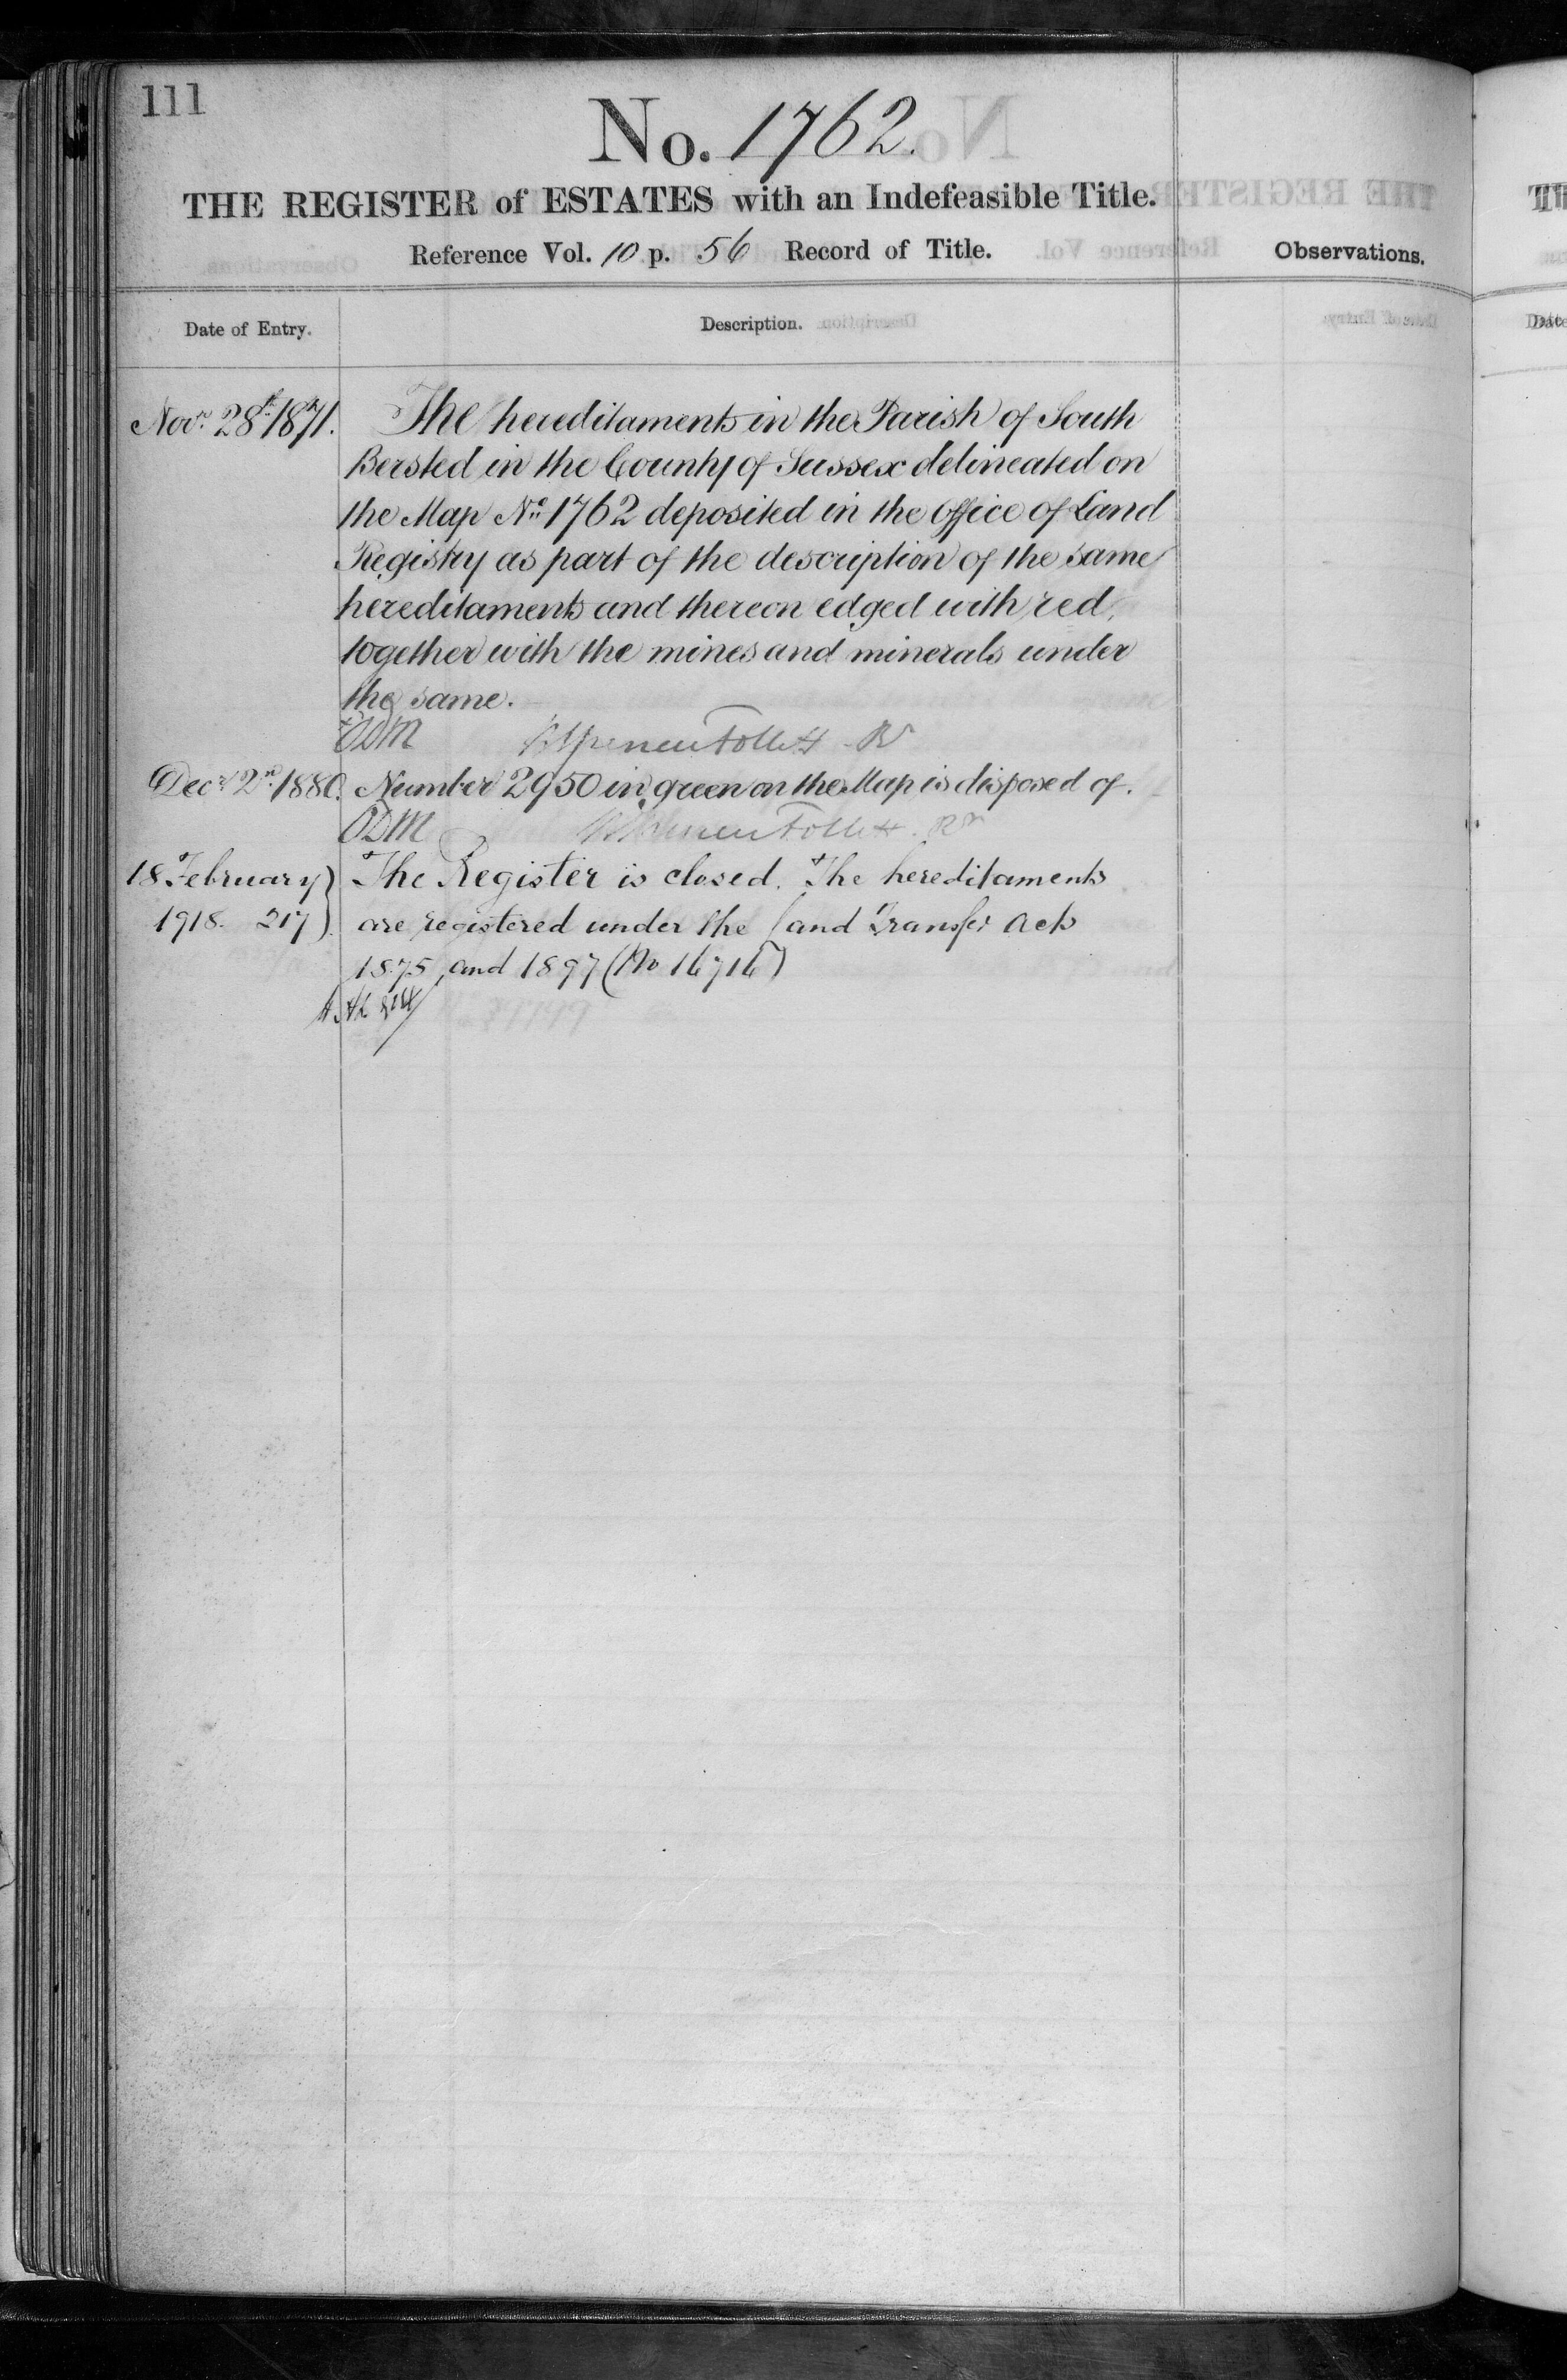 111
No. 1762.
THE REGISTER of ESTATES with an Indefeasible Title.
Reference Vol. 10 p. 56 Record of Title.
Observations.
Date of Entry.
Description.
Novr. 28th 1871.
The hereditaments in the Parish of South
Bersted in the County of Sussex delineated on
the Map No. 1762 deposited in the Office of Land
Registry as part of the description of the same
hereditaments and thereon edged with red,
together with the mines and minerals under
the same.
ODM Follett Rr
Decr. 2nd 1880. Number 2950 in green on the Map is disposed of.
ODM Follett. Rr
18 February
1918. 217
The Register is closed. The hereditaments
are registered under the Land Transfer Acts
1875 and 1897 (No 16716)